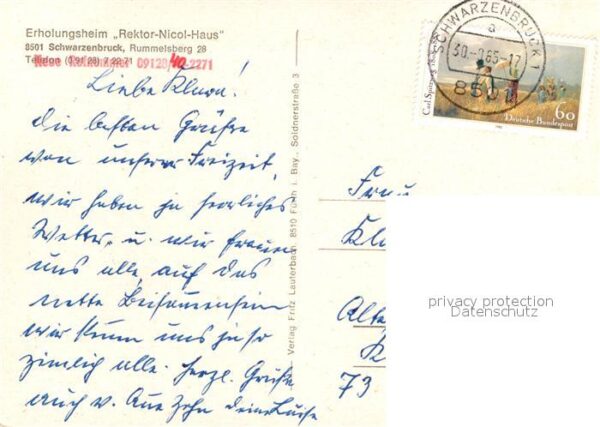 Erholungsheim „Rektor-Nicol-Haus"
8501 Schwarzenbruck, Rummelsberg 28
Telefon (0 91 28) 22 71
Neue Rufnummer 09128/40-2271
Liebe Klara!
Die besten Grüße
von unserer Freizeit,
wir haben ja herrliches
Wetter, u. wir freuen
uns alle, auf das
nette Beisammensein
wir kennen uns ja so
ziemlich alle. Herzl. Grüße
auch v. deine Luise
Verlag Fritz Lauterbach 8510 Fürth i. Bay., Soldnerstraße 3
SCHWARZENBRUCK 1
a
85-17
8501
Carl Spitzweg
60
Deutsche Bundespost
Frau
Kl
Alte
K
73
privacy protection
Datenschutz